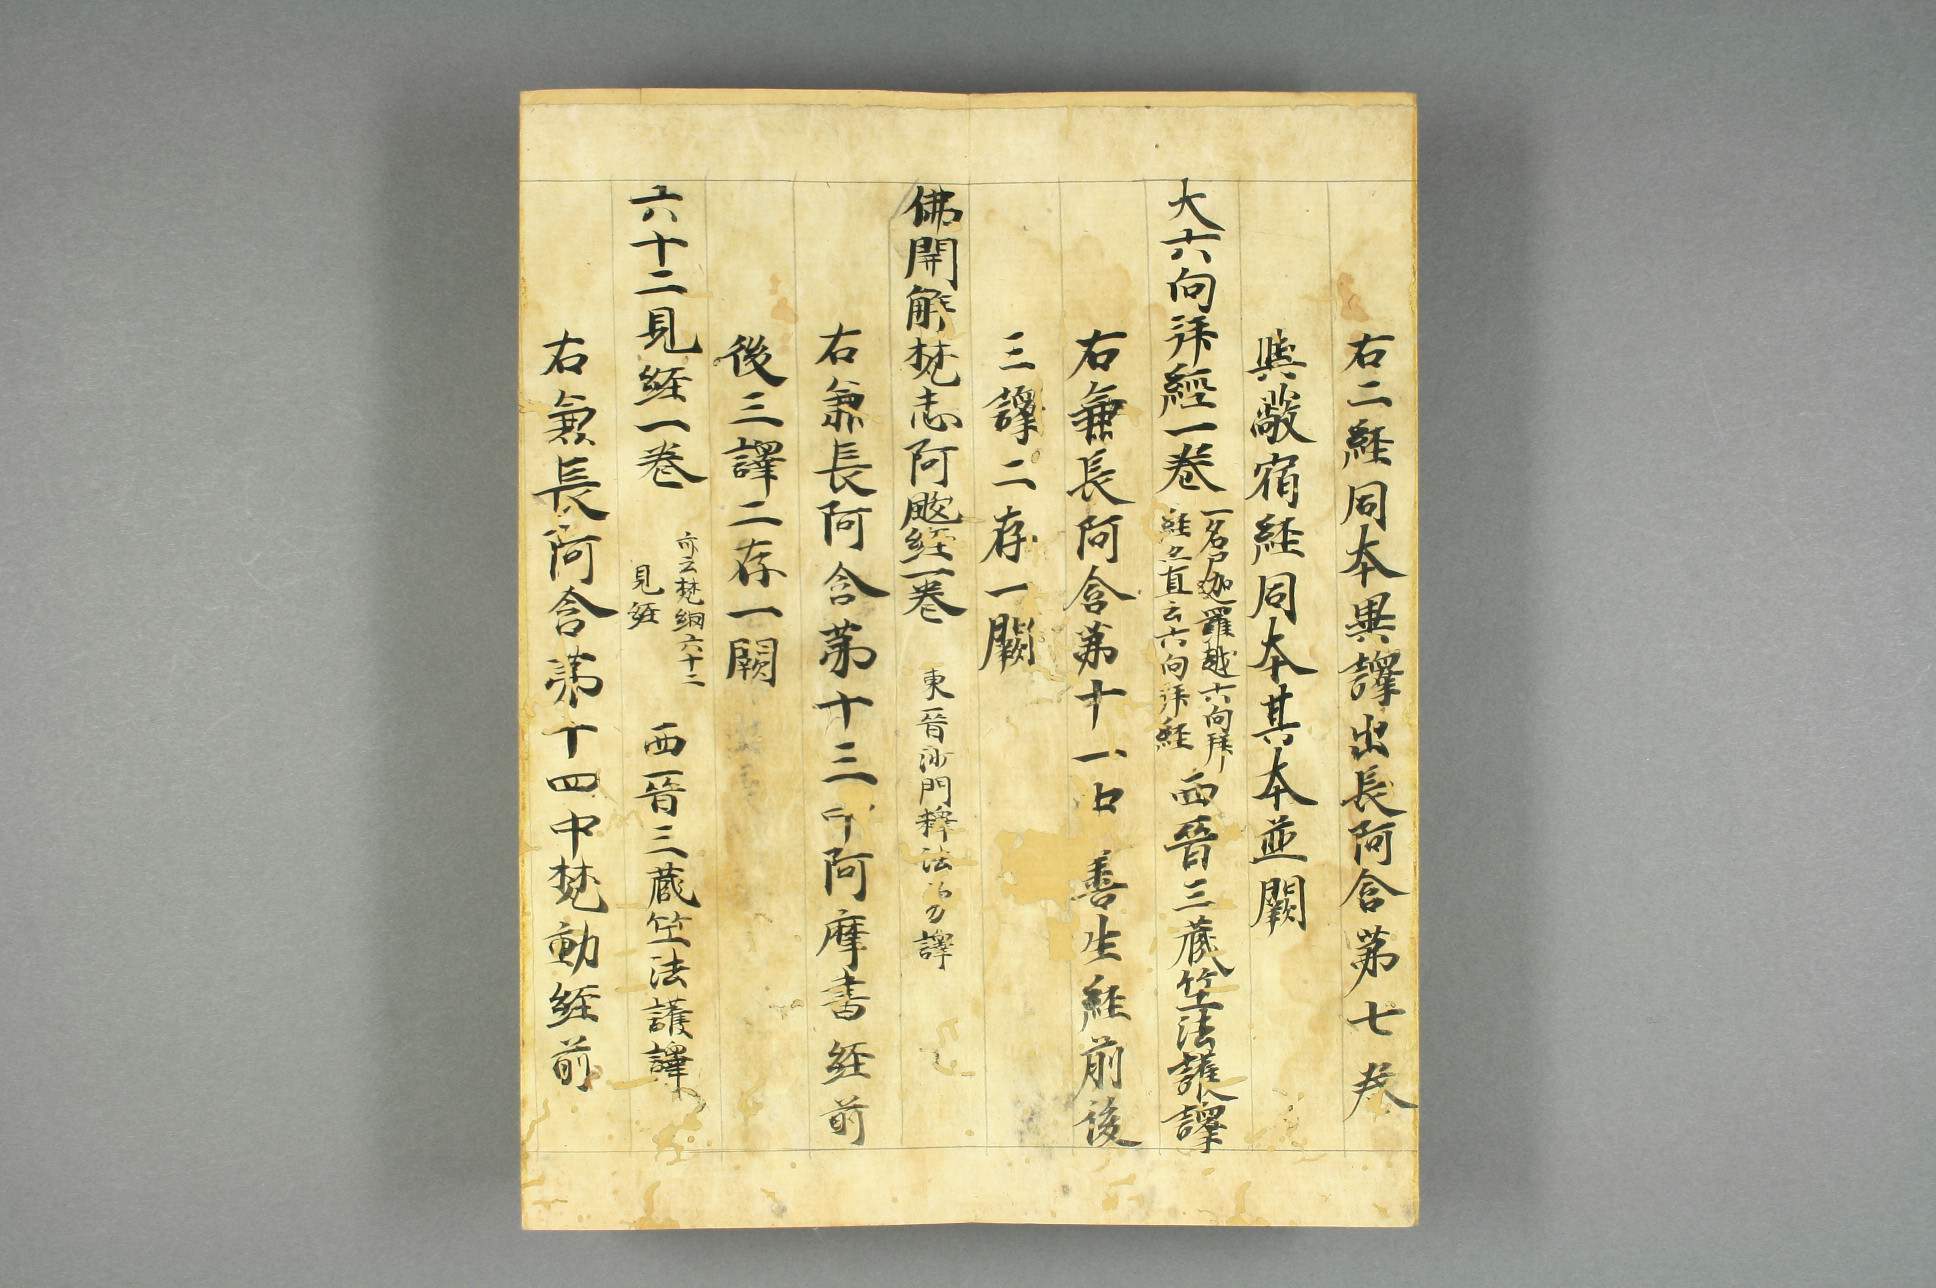 右二経同本異譯出長阿含第七卷
與敞宿経同本其本並闕
大六向拜經一卷
一名尸迦羅越六向拜
経亦直云六向拜経
西晉三藏竺法護譯
右兼長阿含第十一中善生経前後
三譯二存一闕
佛開解梵志阿颰経一卷
東晉沙門釋法勇譯
右兼長阿含第十三中阿摩晝経前
後三譯二存一闕
六十二見経一卷
亦云梵網六十二
見経
西晉三藏竺法護譯
右兼長阿含第十四中梵動経前